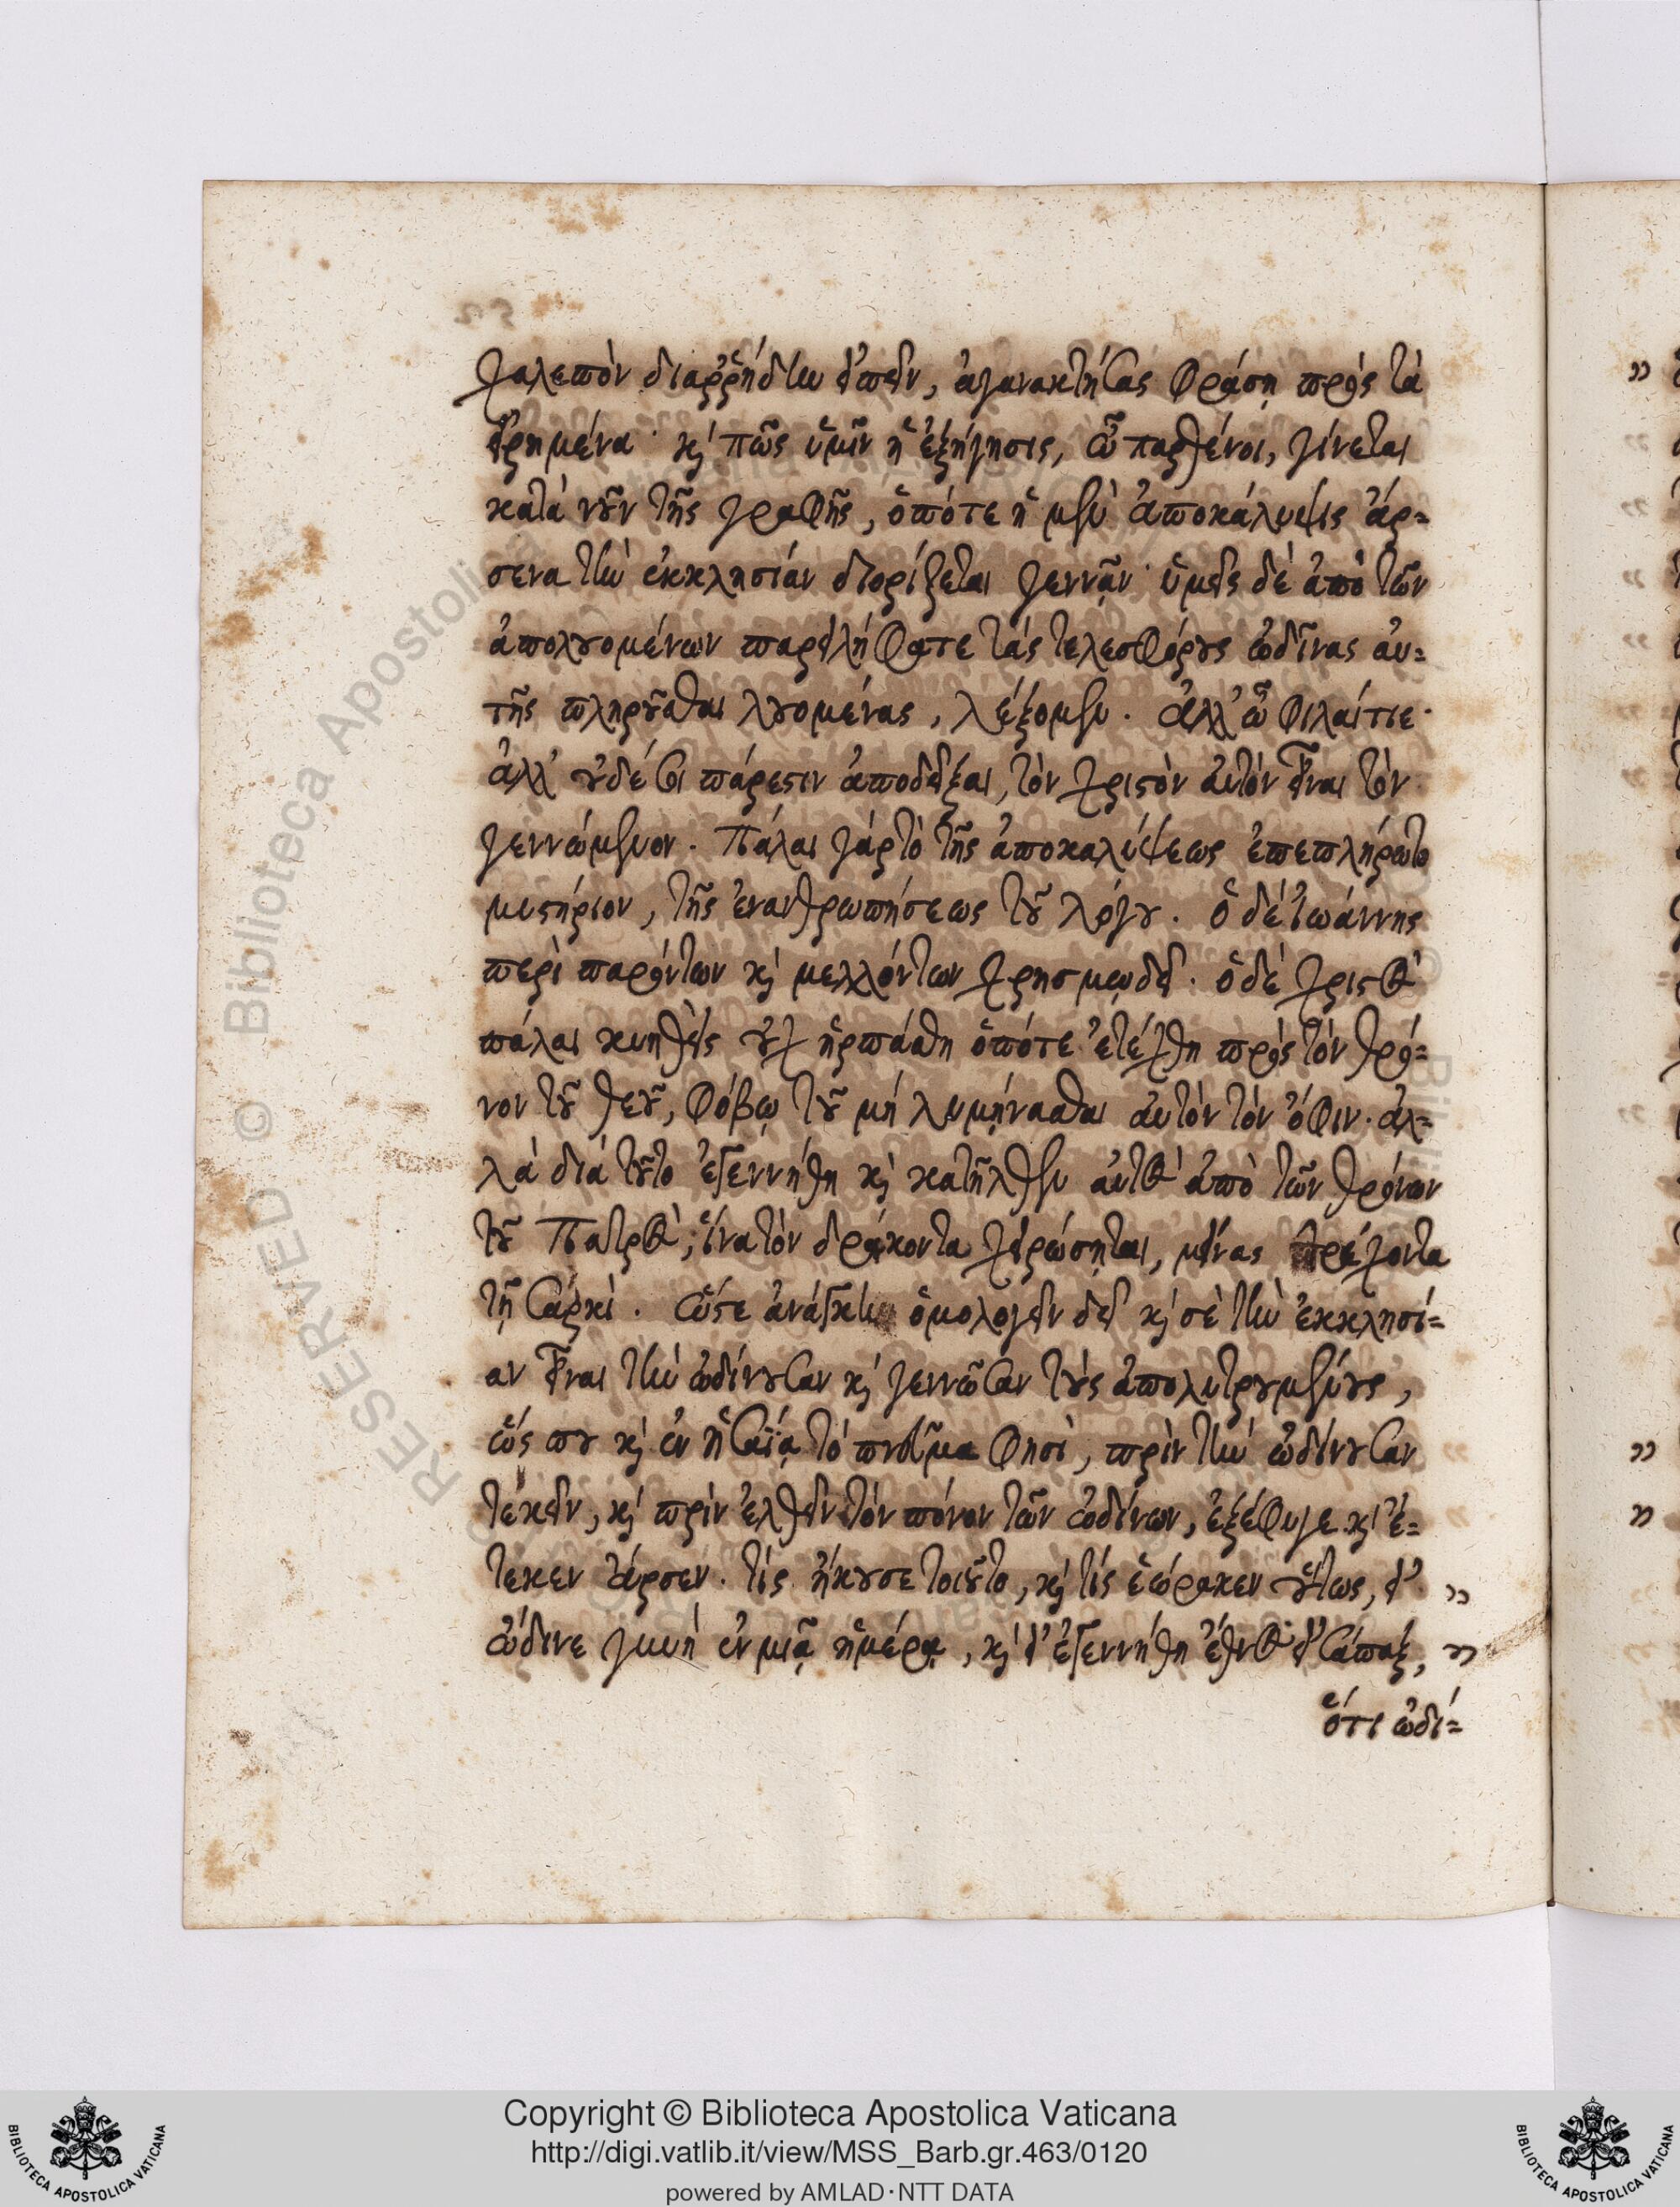 χαλεπὸν διαῤῥήδην εἰπεῖν, ἀγανακτήσας φράσῃ πρὸς τὰ
εἰρημένα· καὶ πῶς ὑμῖν ἡ ἐξήγησις, ὦ παρθένοι, γίνεται
κατὰ νοῦν τῆς γραφῆς, ὁπότε ἡ μὲν ἀποκάλυψις ἄρ=
σενα τὴν ἐκκλησίαν διορίζεται γεννᾷν· ὑμεῖς δὲ ἀπὸ τῶν
ἀπολουομένων παρειλήφατε τὰς τελεσφόρους ὠδῖνας αὐ=
τῆς πληροῦσθαι λουομένας, λέξομεν. ἀλλ' ὦ φιλαίτιε·
ἀλλ' οὐδέ σοι πάρεστιν ἀποδεῖξαι, τὸν χριστὸν αὐτὸν εἶναι τὸν
γεννώμενον. Πάλαι γὰρ τὸ τῆς ἀποκαλύψεως ἐπεπλήρωτο
μυστήριον, τῆς ἐνανθρωπήσεως τοῦ λόγου. ὁ δὲ Ἰωάννης
περὶ παρόντων καὶ μελλόντων χρησμῳδεῖ. ὁ δὲ χριστὸς
πάλαι κυηθεὶς οὐχ ἡρπάσθη ὁπότε ἐτέχθη πρὸς τὸν θρό=
νον τοῦ θεοῦ, φόβῳ τοῦ μὴ λυμῄνασθαι αὐτὸν τὸν ὄφιν. ἀλ=
λὰ διὰ τοῦτο ἐγεννήθη καὶ κατῆλθεν αὐτὸς ἀπὸ τῶν θρόνων
τοῦ Πατρὸς, ἵνα τὸν δράκοντα χειρώσηται, μείνας τρέχοντα
τῇ σαρκί. ὥστε ἀνάγκην ὁμολογεῖν δεῖ καὶ σὲ τὴν ἐκκλησί=
αν εἶναι τὴν ὠδίνουσαν καὶ γεννῶσαν τοὺς ἀπολυτρουμένους,
ὥς που καὶ ἐν ἡσαΐᾳ τὸ πνεῦμα φησὶ, πρὶν τὴν ὠδίνουσαν
τεκεῖν, καὶ πρὶν ἐλθεῖν τὸν πόνον τῶν ὠδίνων, ἐξέφυγε καὶ ἔ=
τεκεν ἄρσεν. τίς ἤκουσε τοιοῦτο, καὶ τίς ἑώρακεν οὕτως, εἰ „
ὤδινε γυνὴ ἐν μιᾷ ἡμέρᾳ, καὶ εἰ ἐγεννήθη ἔθνος εἰσάπαξ, „
ὅτι ὠδί=
Copyright © Biblioteca Apostolica Vaticana
http://digi.vatlib.it/view/MSS_Barb.gr.463/0120
powered by AMLAD·NTT DATA
BIBLIOTECA APOSTOLICA VATICANA
BIBLIOTECA APOSTOLICA VATICANA